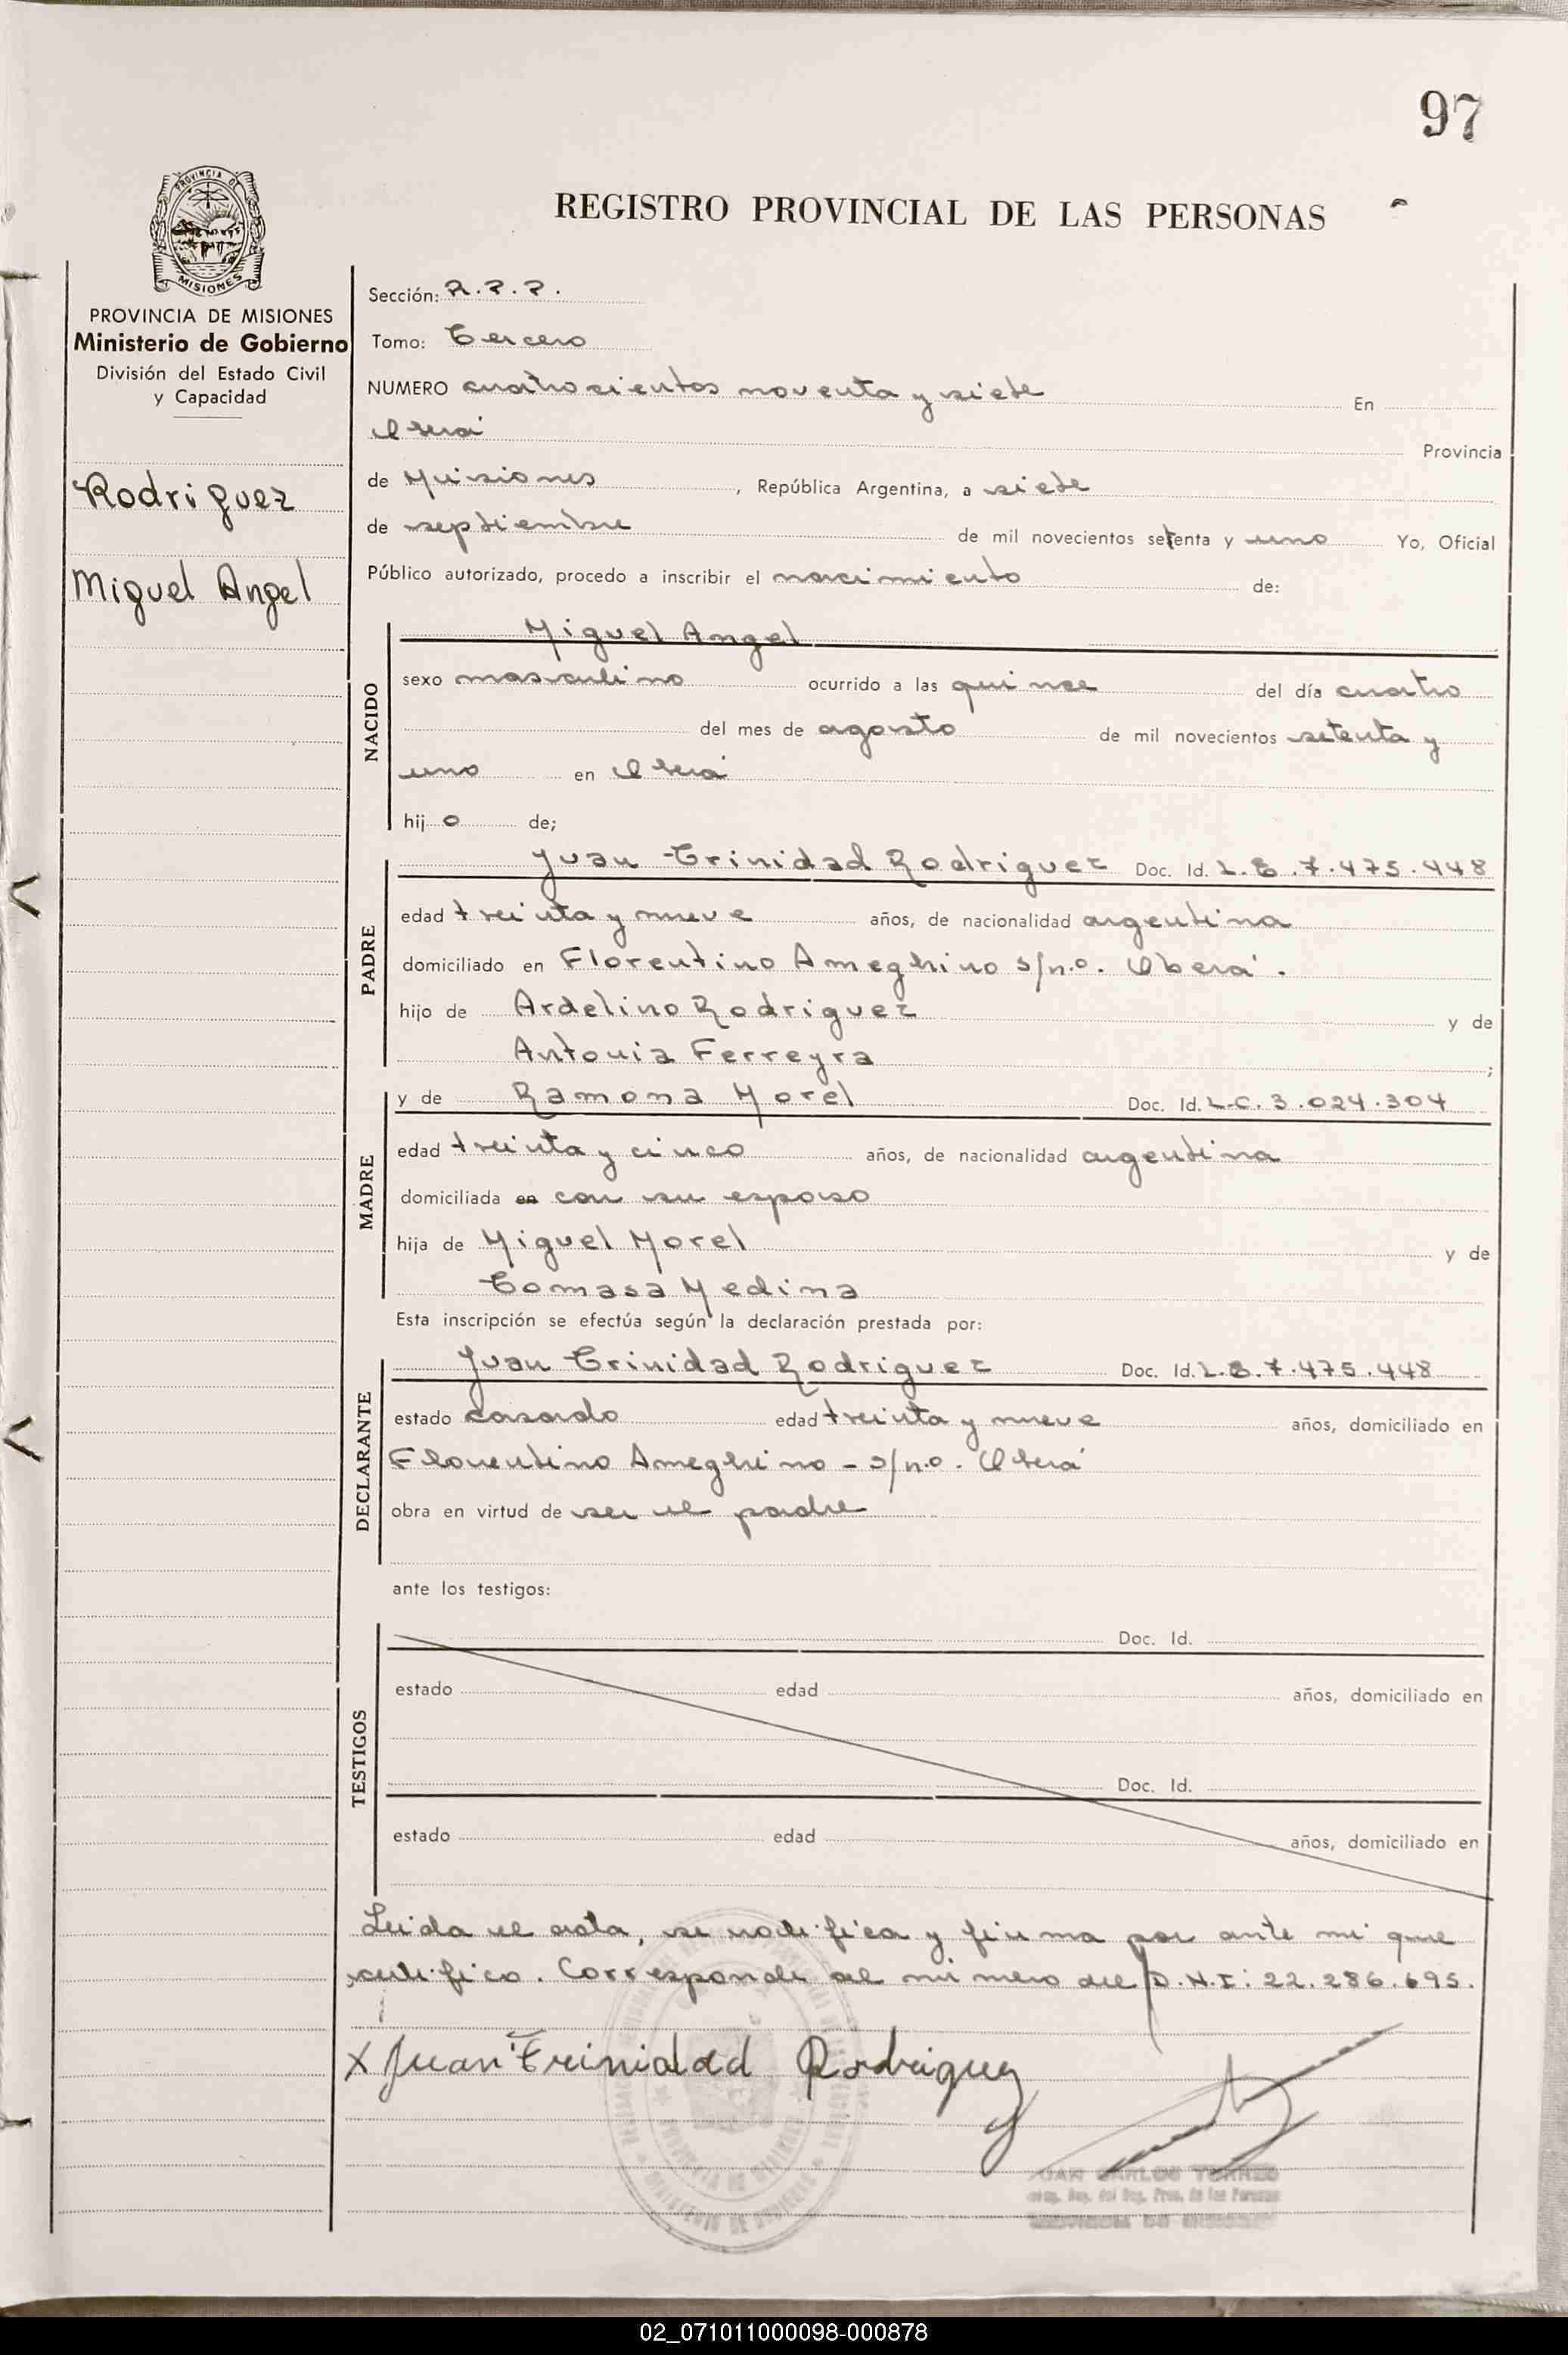 97
REGISTRO PROVINCIAL DE LAS PERSONAS
PROVINCIA DE
MISIONES
PROVINCIA DE MISIONES
Ministerio de Gobierno
División del Estado Civil
y Capacidad
Rodriguez
Miguel Angel
Sección: R.P.P.
Tomo: Tercero
NUMERO cuatrocientos noventa y siete En
Oberá Provincia
de Misiones, República Argentina, a siete
de septiembre de mil novecientos setenta y uno Yo, Oficial
Público autorizado, procedo a inscribir el nacimiento de:
NACIDO
Miguel Angel
sexo masculino ocurrido a las quince del día cuatro
del mes de agosto de mil novecientos setenta y
uno en Oberá
hijo de;
PADRE
Juan Trinidad Rodriguez Doc. Id. L.E.7.475.448
edad treinta y nueve años, de nacionalidad argentina
domiciliado en Florentino Ameghino s/n.o. Oberá.
hijo de Ardelino Rodriguez y de
Antonia Ferreyra ;
MADRE
y de Ramona Morel Doc. Id. L.C. 3.024.304
edad treinta y cinco años, de nacionalidad argentina
domiciliada en con su esposo
hija de Miguel Morel y de
Tomasa Medina
Esta inscripción se efectúa según la declaración prestada por:
DECLARANTE
Juan Trinidad Rodriguez Doc. Id. L.E.7.475.448
estado casado edad treinta y nueve años, domiciliado en
Florentino Ameghino - s/n.o. Oberá
obra en virtud de ser el padre
ante los testigos:
TESTIGOS
Doc. Id.
estado edad años, domiciliado en
Doc. Id.
estado edad años, domiciliado en
Leida el acta, se ratifica y firma por ante mi que
certifico. Corresponde al número del D.N.I: 22.286.695.
X Juan Trinidad Rodriguez
JUAN CARLOS
02_071011000098-000878